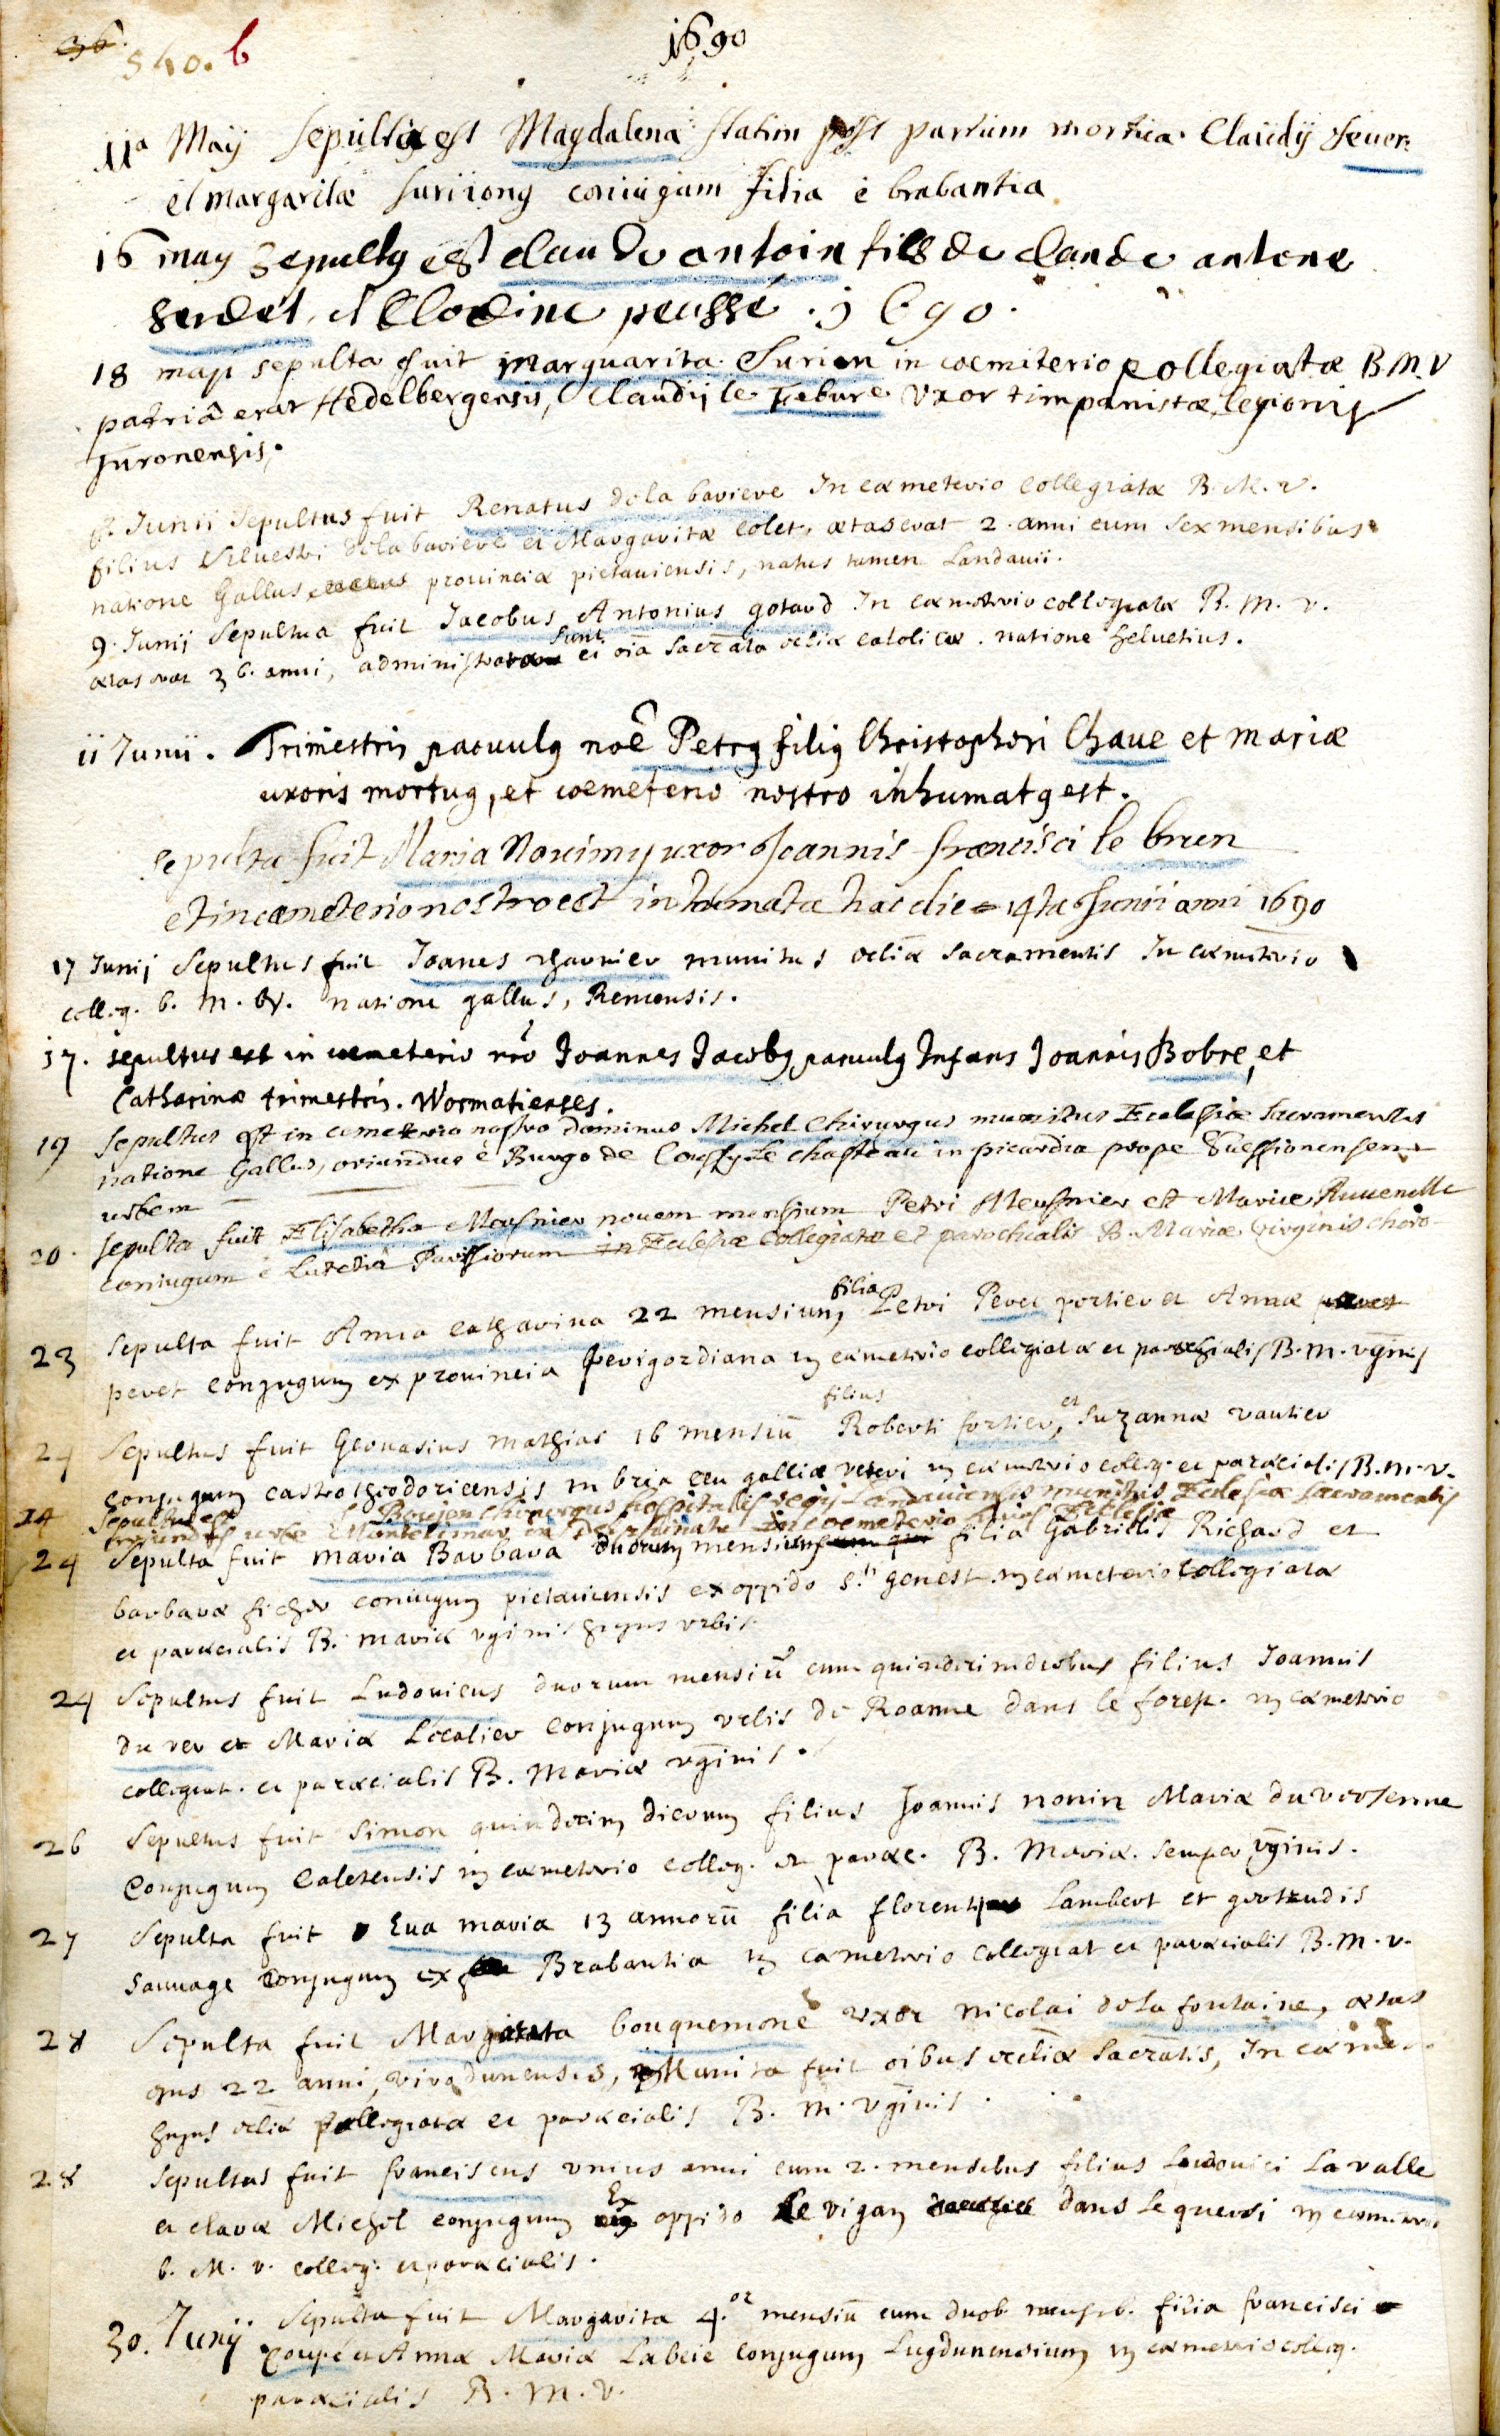 36. 540. b
1690
11a Maÿ sepulta est Magdalena statim post partum mortua. Claudÿ feuer:
et margaritæ suriiong coniugum filia è brabantia
16 may sepultq est claude antoin fills de claude antone
gerdet, et Clodine peussé. 1690.
18 maji sepulta fuit marguarita Surion in coemiterio collegiatæ B.M.V
patriâ erat Hedelbergensis, Claudij le Febure vxor timpanistæ legionis
Turonensis.
8. Junii Sepultus fuit Renatus dela baviere In cæmeterio collegiatæ B.M.v.
filius Siluestri dela baviere et Margaritæ colet, ætas erat 2. anni cum sex mensibus
natione Gallus, prouinciæ pictauiensis, natus tamen Landauii.
9. Junij Sepultus fuit Jacobus Antonius gotard In cæmeterio collegiatæ B.m.v.
ætas erat 36. anni, administrata sunt ei oīa sacrāta ecliæ catolicæ. natione heluetius.
ii Junii. Trimestris paruulq noē Petrq filiq Christophori Chaue et mariæ
uxoris mortuq, et coemeterio nostro inhumatq est.
sepulta fuit Maria Nouimy uxor Joannis francisci le brun
et in cæmeterio nostro est inhumata hac die 14ta Junii anni 1690
17 Junij Sepultus fuit Joanes charnier munitus ecliæ sacramentis In cæmeterio
colleg. b. m. v. natione gallus, Remensis.
17. sepultus est in cemeterio nr̄o Joannes Jacobq paruulq Infans Joannis Bobre, et
Catharinæ trimestris. Wormatienses.
19 Sepultus est in cemeterio nostro dominus Michel Chirurgus munitus Ecclesiæ sacramentis
natione Gallus, oriundus è Burgo de Coussy le chasteau in picardia prope Suessionensem
urbem
20. sepulta fuit Elisabetha Meusnier nouem mensium Petri Meusnier et Mariæ Ruuenelle
coniugum è Lutetia Parisiorum in Ecclesiæ collegiatæ et parochialis B. Mariæ Virginis choro
23 Sepulta fuit Anna catharina 22 mensium filia Petri Peuet portier et Annæ
peuet conjugum ex prouincia perigordiana in cæmeterio collegiatæ et parochialis B.m. vginis
24 Sepultus fuit Geruasius mathias 16 mensiū filius Roberti fortier, et suzannæ vautier
conjugum castrotheodoricensis in bria ceu galliæ veteri in cæmeterio colleg. et paræcialis B.m.v.
24 Sepultus est Boujon chirurgus hospitalis regij Landauiensis munitus Ecclesiæ sacramentis
oriundus urbe Montelimar in Delphinatu in coemeterio huius Ecclesiæ
24 Sepulta fuit maria Barbara duorum mensium filia Gabrielis Richard et
barbaræ ficher coniugum pictauiensis ex oppido s.ti genest in cæmeterio collegiatæ
et paræcialis B. mariæ vginis hujus vrbis
24 Sepultus fuit Ludouicus duorum mensiū cum quindecim diebus filius Joannis
du rer et Mariæ Lecalier conjugum vrbis de Roanne dans le forest. in cæmeterio
collegiat. et paræcialis B. Mariæ vginis.
26 Sepultus fuit simon quindecim dierum filius Joannis nonin Mariæ du versenne
Conjugum Caletensis in cæmeterio colleg. et paræc. B. Mariæ. semper vginis.
27 Sepulta fuit Eua maria 13 annorū filia florentij Lambert et gertrudis
sauuage Conjugum ex Brabantia in cæmeterio collegiat et paræcialis B.m.v.
28 Sepulta fuit Margareta bouquemone vxor Nicolai dela fontaine, ætas
ejus 22 anni, virodunensis, Munita fuit oibus ecliæ sacrātis, In cæme.
hujus ecliæ collegiatæ et paræcialis B. m. vginis.
28 Sepultus fuit franciscus vnius anni cum 2. mensibus filius Ludouici La valle
et claræ Michel conjugum Ex oppido le vigan dans le quersi in cæmeterio
b. M. v. colleg: et paræcialis.
30. Junij Sepulta fuit Margarita 4.or mensiū cum duob. filia francisci
Coupé et Annæ Mariæ Labeie conjugum Lugdunensium in cæmeterio colleg.
paræcialis B. m. v.